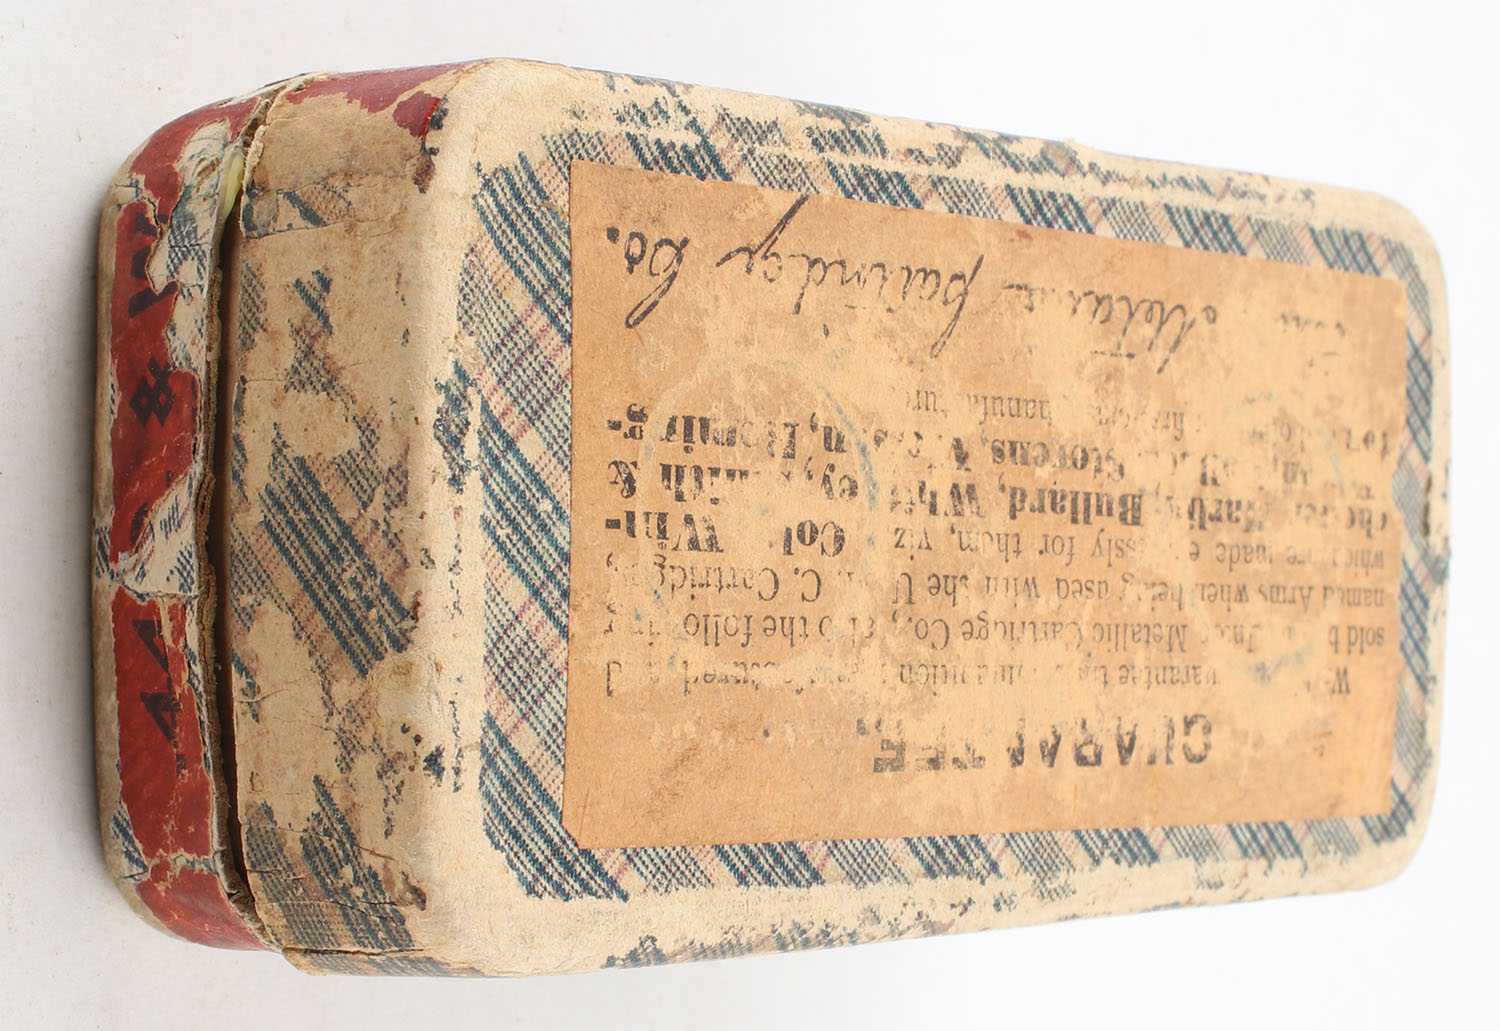 GUARANTEE.
guarantee the ammunition manufactured and
sold Union Metallic Cartridge Co., to the following
named Arms when being used with the U. M. C. Cartridges,
which are made expressly for them, viz Colt, Win-
chester, Marlin, Bullard, Whitney, Smith &
Stevens, Wesson, Reming-
ton manufacturers
The Metallic Cartridge Co.
44 & W